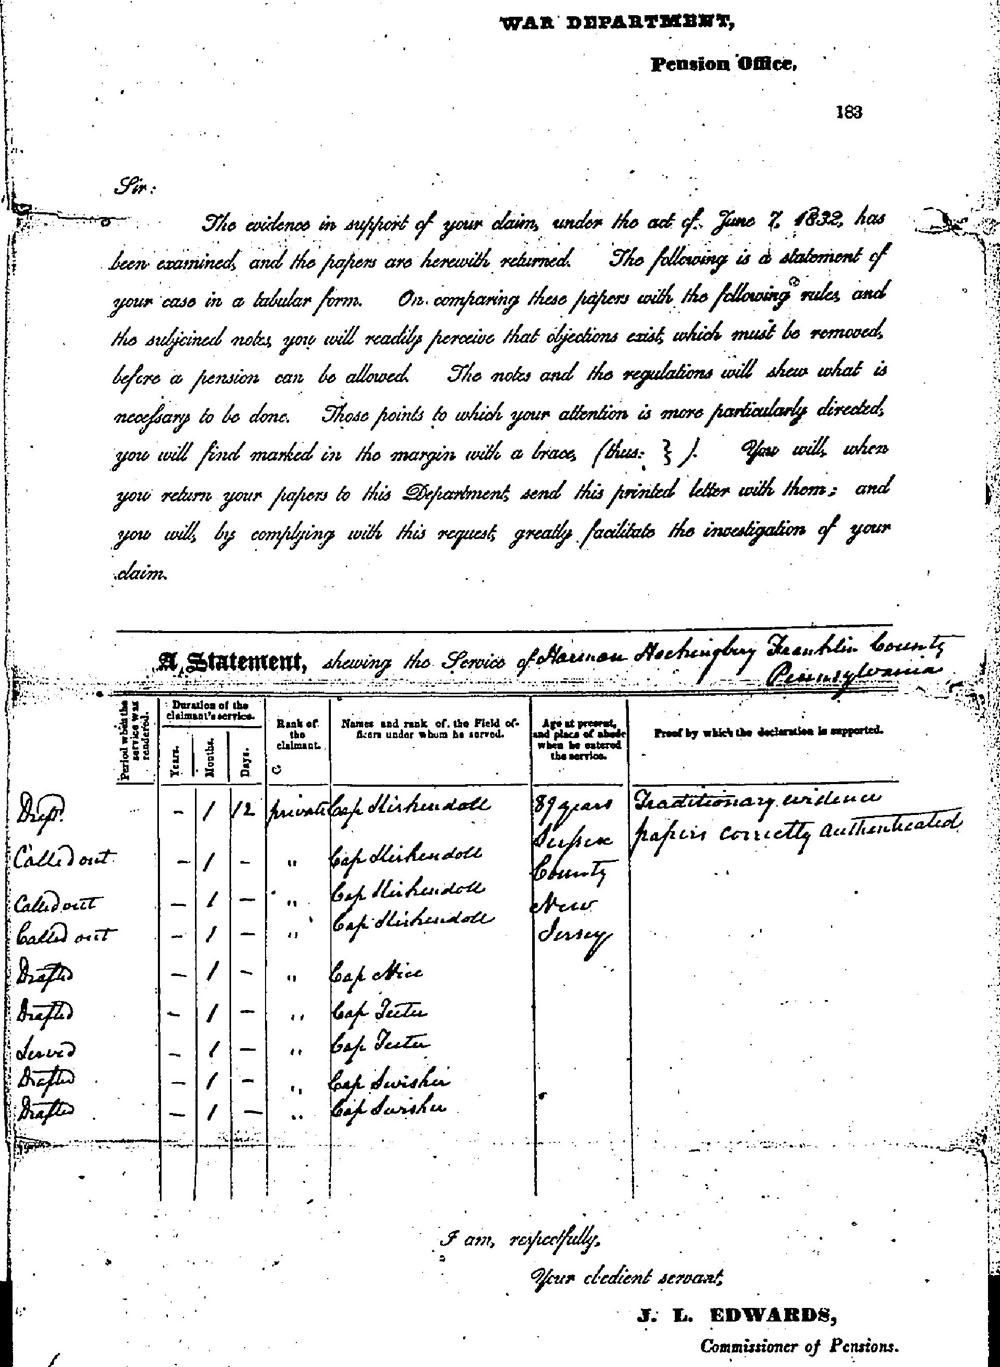 WAR DEPARTMENT,
Pension Office,
183
Sir:
The evidence in support of your claim, under the act of June 7, 1832, has
been examined, and the papers are herewith returned. The following is a statement of
your case in a tabular form. On comparing these papers with the following rules, and
the subjoined notes, you will readily perceive that objections exist, which must be removed,
before a pension can be allowed. The notes and the regulations will shew what is
necessary to be done. Those points to which your attention is more particularly directed,
you will find marked in the margin with a brace, (thus: } ). You will, when
you return your papers to this Department, send this printed letter with them; and
you will, by complying with this request, greatly facilitate the investigation of your
claim.
A Statement, shewing the Service of Harman Franklin County
Pennsylvania
Period when the service was rendered.
Duration of the claimant's service.
Years. Months. Days.
Rank of the claimant.
Names and rank of the Field officers under whom he served.
Age at present, and place of abode when he entered the service.
Proof by which the declaration is supported.
Draft. – 1 12 private Cap Kirkendoll 89 years Traditionary evidence
Sussex papers correctly authenticated
Called out – 1 – " Cap Kirkendoll County
Called out – 1 – " Cap Kirkendoll New
Called out – 1 – " Cap Kirkendoll Jersey
Drafted – 1 – " Cap Nice
Drafted – 1 – " Cap Teeter
Served – 1 – " Cap Teeter
Drafted – 1 – " Cap Swisher
Drafted – 1 – " Cap Swisher
I am, respectfully,
Your obedient servant,
J. L. EDWARDS,
Commissioner of Pensions.